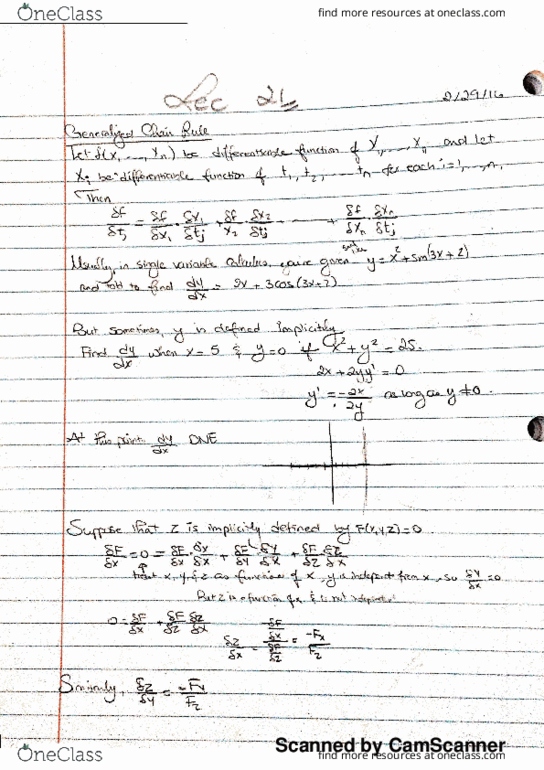 OneClass find more resources at oneclass.com
Lec 21
2/29/16
Generalized Chain Rule
Let f(x₁, ..., xₙ) be differentiable function of x₁, ..., xₙ and let
xᵢ be differentiable function of t₁, t₂, ... tₙ for each i=1, ..., n.
Then
δf/δtⱼ = δf/δx₁ · δx₁/δtⱼ + δf/x₂ · δx₂/δtⱼ ... + δf/δxₙ · δxₙ/δtⱼ
Usually, in single variable calculus, you're given y = x² + sin(3x+2)
and told to find dy/dx = 2x + 3cos(3x+2)
But sometimes, y is defined implicitly
Find dy/dx when x = 5 & y=0 if x² + y² = 25.
2x + 2yy' = 0
y' = -2x/2y as long as y ≠ 0.
At this point dy/dx DNE
Suppose that Z is implicitly defined by F(x,y,z)=0
δF/δx = 0 = δF/δx · δx/δx + δF/δy · δy/δx + δF/δz · δz/δx
treat x, y, & z as functions of x, y is independent from x, so δy/δx = 0
But z is a function of x, & is not independent
0 = δF/δx + δF/δz δz/δx
δz/δx = -δF/δx / δF/δz = -Fx/Fz
Similarly, δz/δy = -Fy/Fz
Scanned by CamScanner
OneClass find more resources at oneclass.com